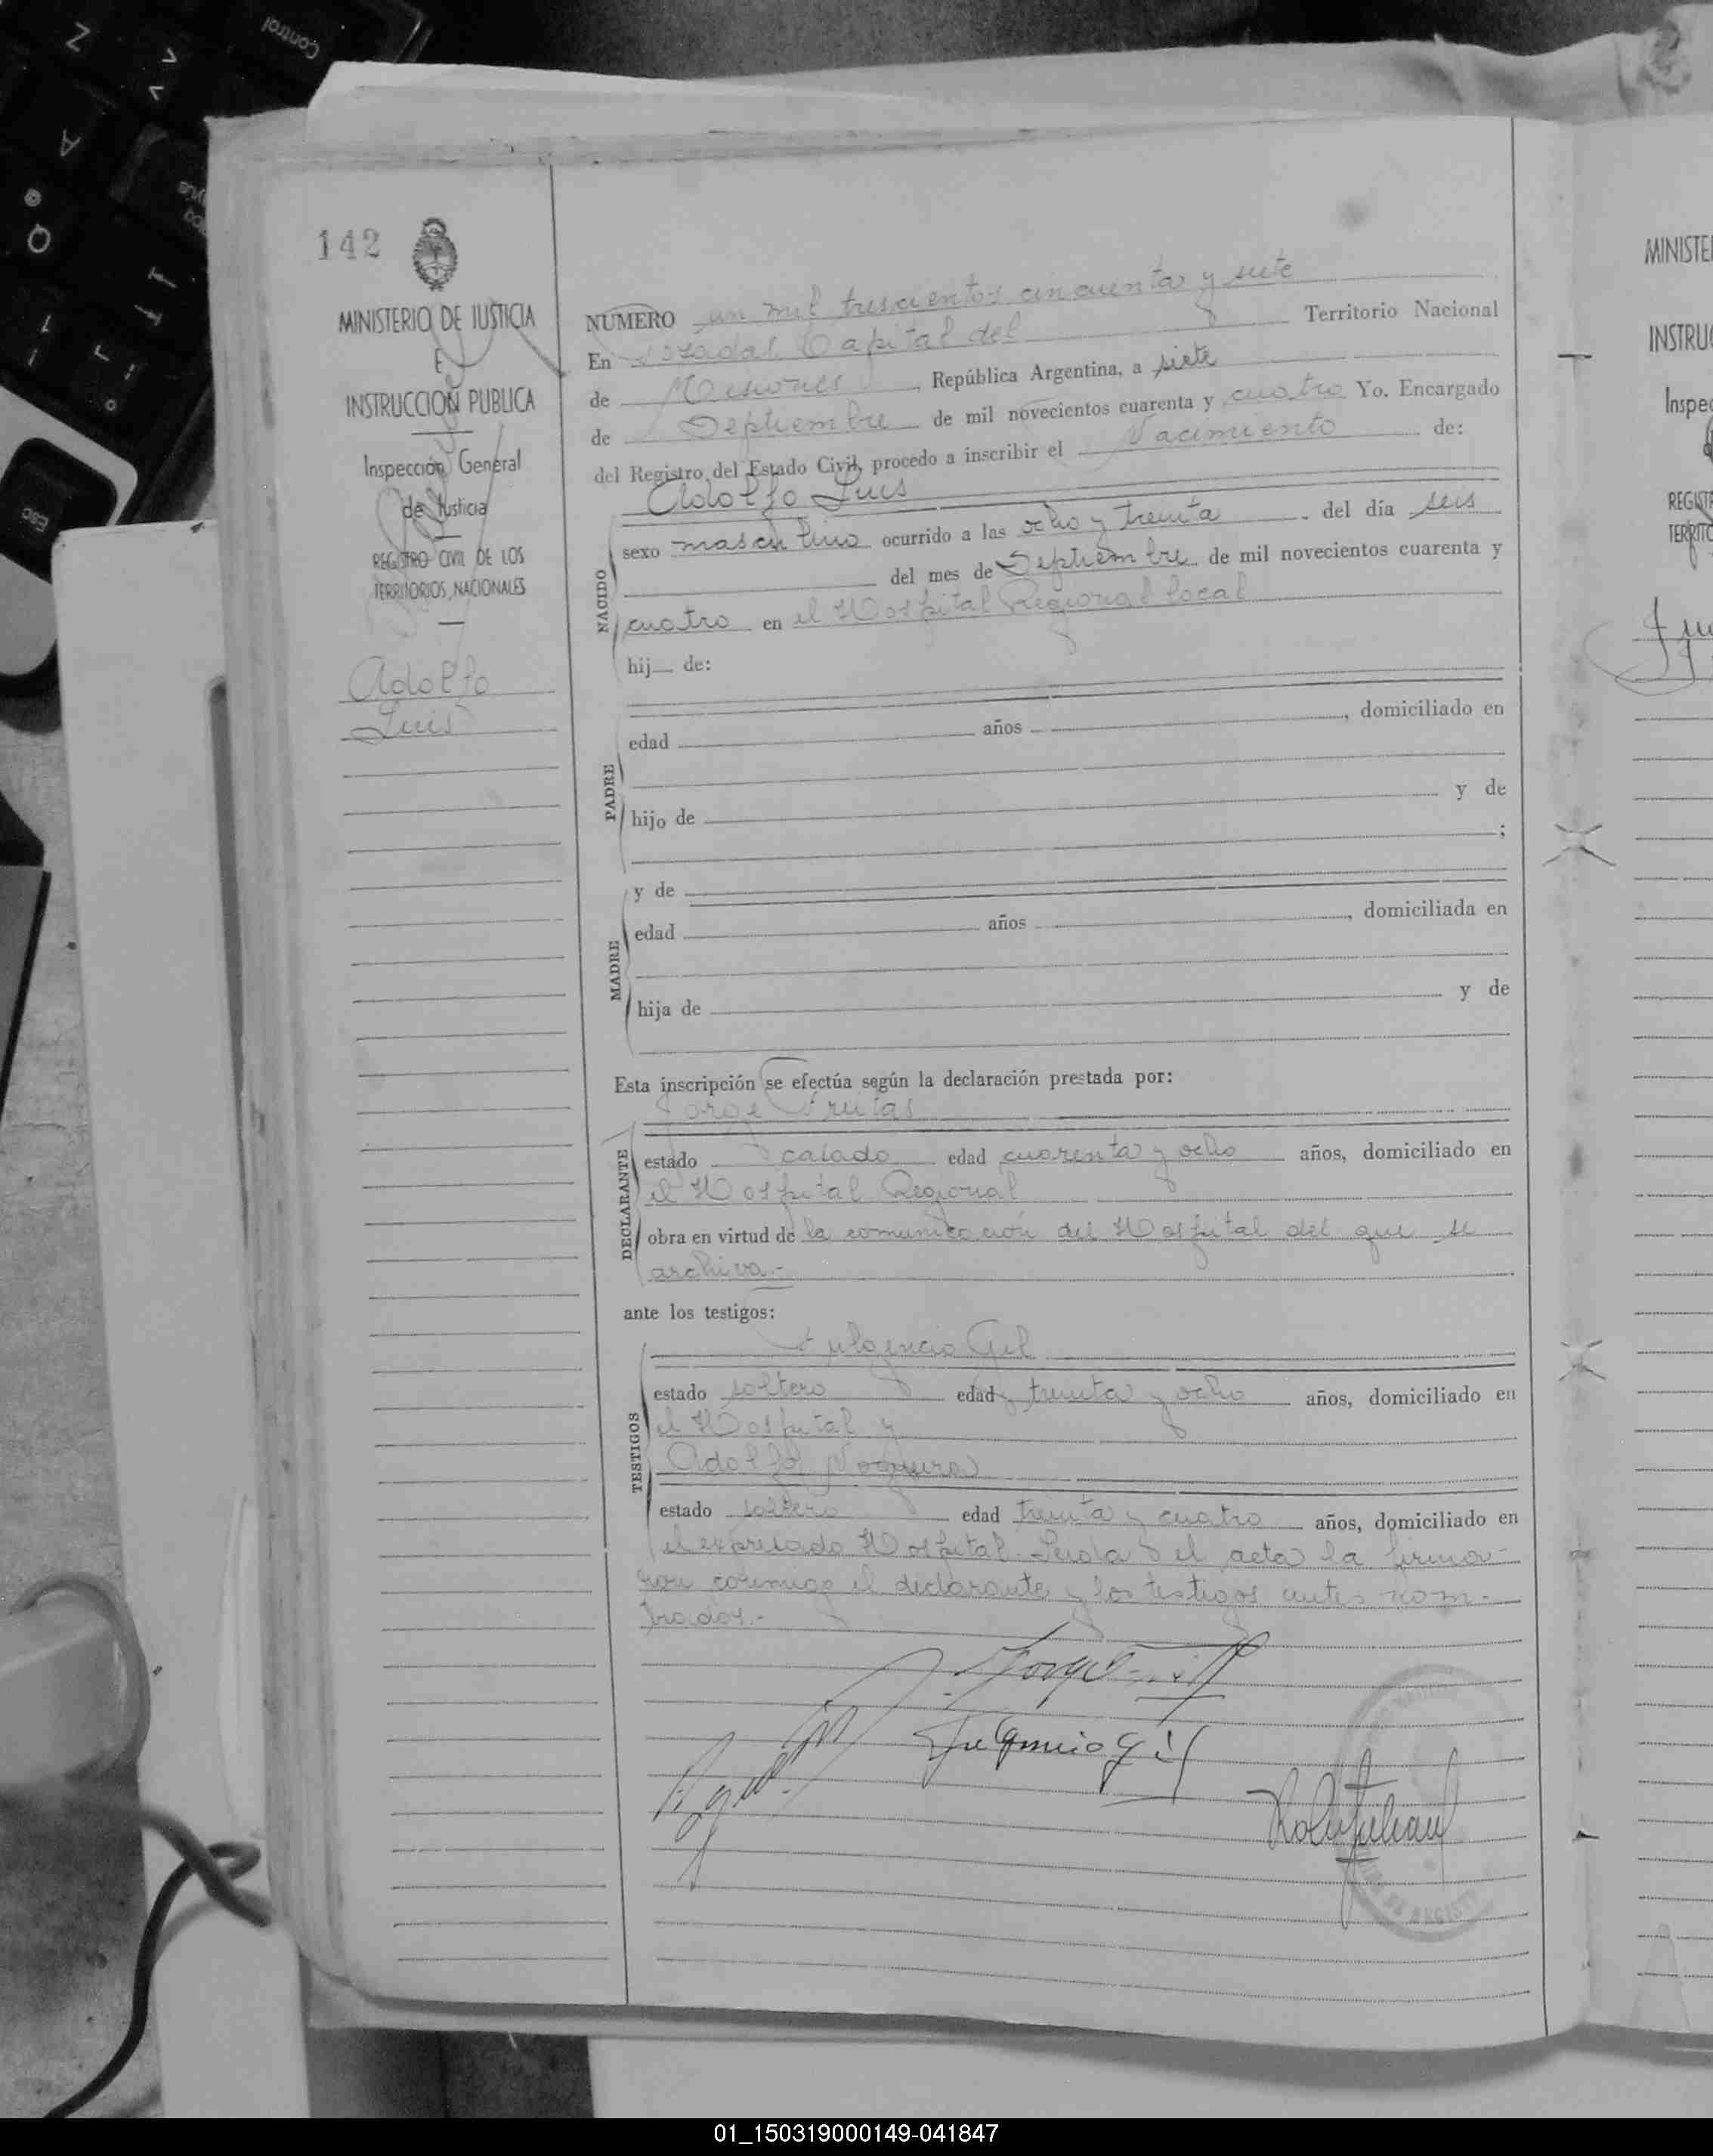 142
MINISTERIO DE JUSTICIA
E
INSTRUCCION PUBLICA
Inspección General
de Justicia
REGISTRO CIVIL DE LOS
TERRITORIOS NACIONALES
Adolfo
Luis
NUMERO un mil trescientos cincuenta y siete
En Posadas Capital del Territorio Nacional
de Misiones, República Argentina, a siete
de Septiembre de mil novecientos cuarenta y cuatro Yo. Encargado
del Registro del Estado Civil, procedo a inscribir el Nacimiento de:
Adolfo Luis
NACIDO
sexo masculino ocurrido a las ocho y treinta del día seis
del mes de Septiembre de mil novecientos cuarenta y
cuatro en el Hospital Regional local
hij de:
PADRE
edad años , domiciliado en
hijo de y de
;
MADRE
y de
edad años , domiciliada en
hija de y de
Esta inscripción se efectúa según la declaración prestada por:
Jorge
DECLARANTE
estado casado edad cuarenta y ocho años, domiciliado en
el Hospital Regional
obra en virtud de la comunicación del Hospital del que se
archiva.-
ante los testigos:
Fulgencio Gil
TESTIGOS
estado soltero edad treinta y ocho años, domiciliado en
el Hospital y
Adolfo Noguera
estado soltero edad treinta y cuatro años, domiciliado en
el expresado Hospital. Leida el acta la firma-
ron conmigo el declarante y los testigos antes nom-
brados.-
Fulgencio Gil
MINISTE
INSTRU
Inspec
REGIST
TERRITO
Control
Esc
01_150319000149-041847